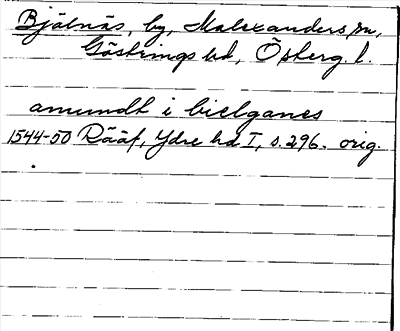 Bjälnäs, by, Malexanders sn,
Göstrings hd, Österg. l.
amundt i bielganes
1544-50 Rääf, Ydre hd I, s. 296. orig.